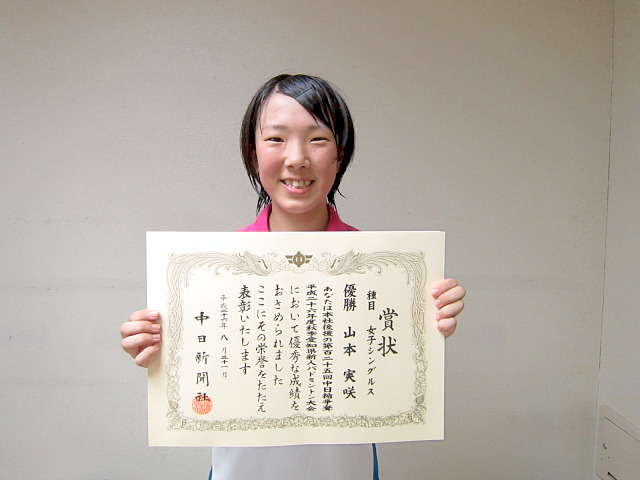 賞状
種目 女子シングルス
優勝 山本 実咲
あなたは本社後援の第百二十五回中日楯争奪
平成二十六年度秋季愛知県新人バドミントン大会
において優秀な成績を
おさめられました
ここにその栄誉をたたえ
表彰いたします
平成二十六年 八月三十一日
中日新聞社